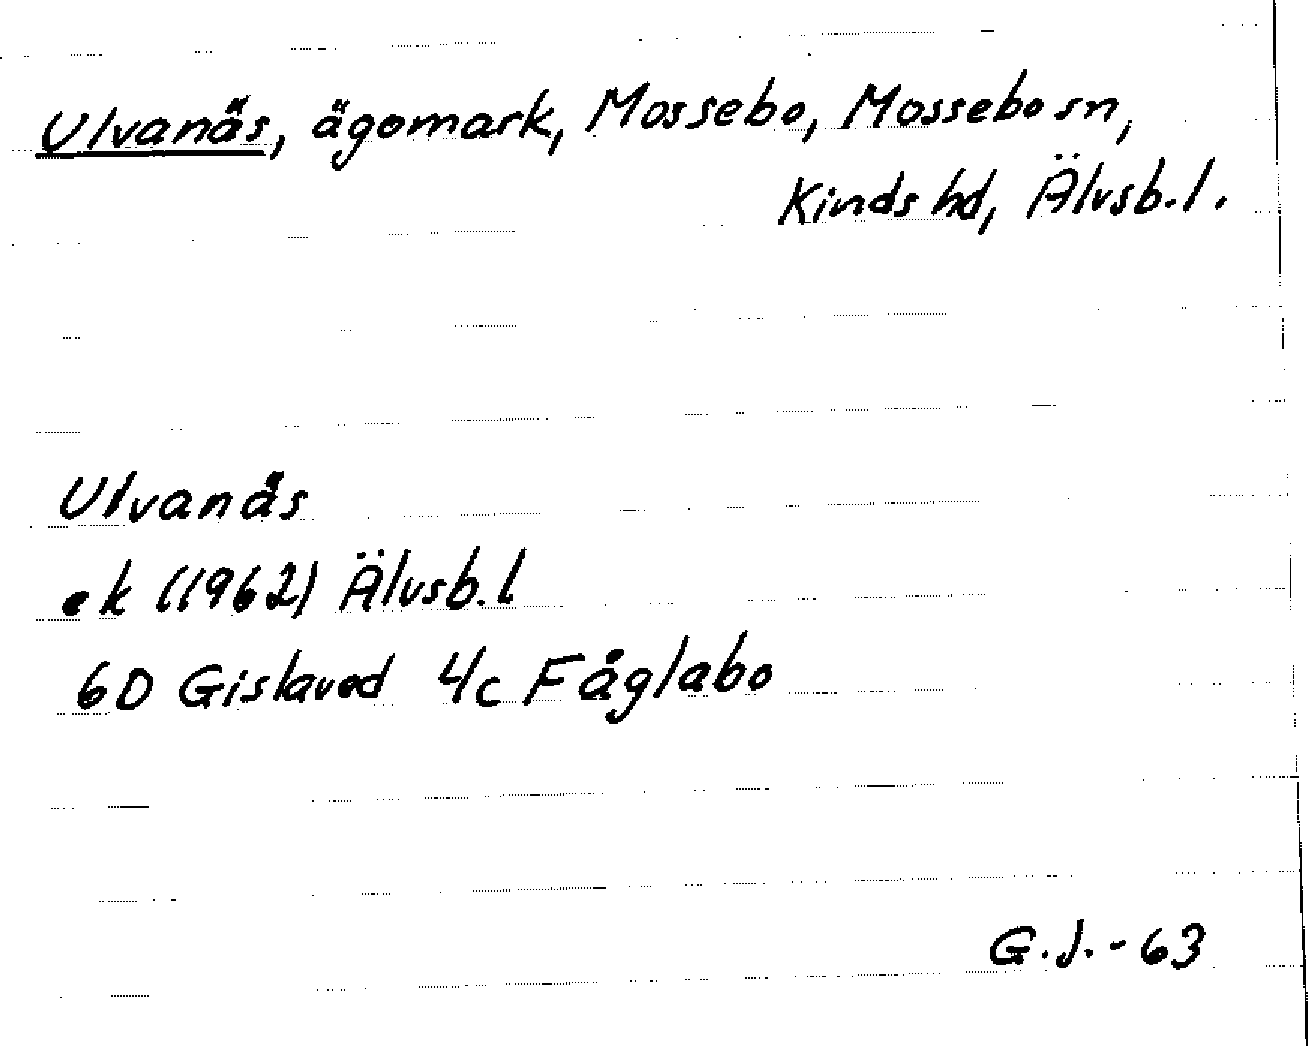 Ulvanäs, ägomark, Mossebo, Mossebo sn,
Kinds hd, Älvsb. l.
Ulvanäs
ek (1962) Älvsb. l
6D Gislaved 4c Fåglabo
G.J. - 63